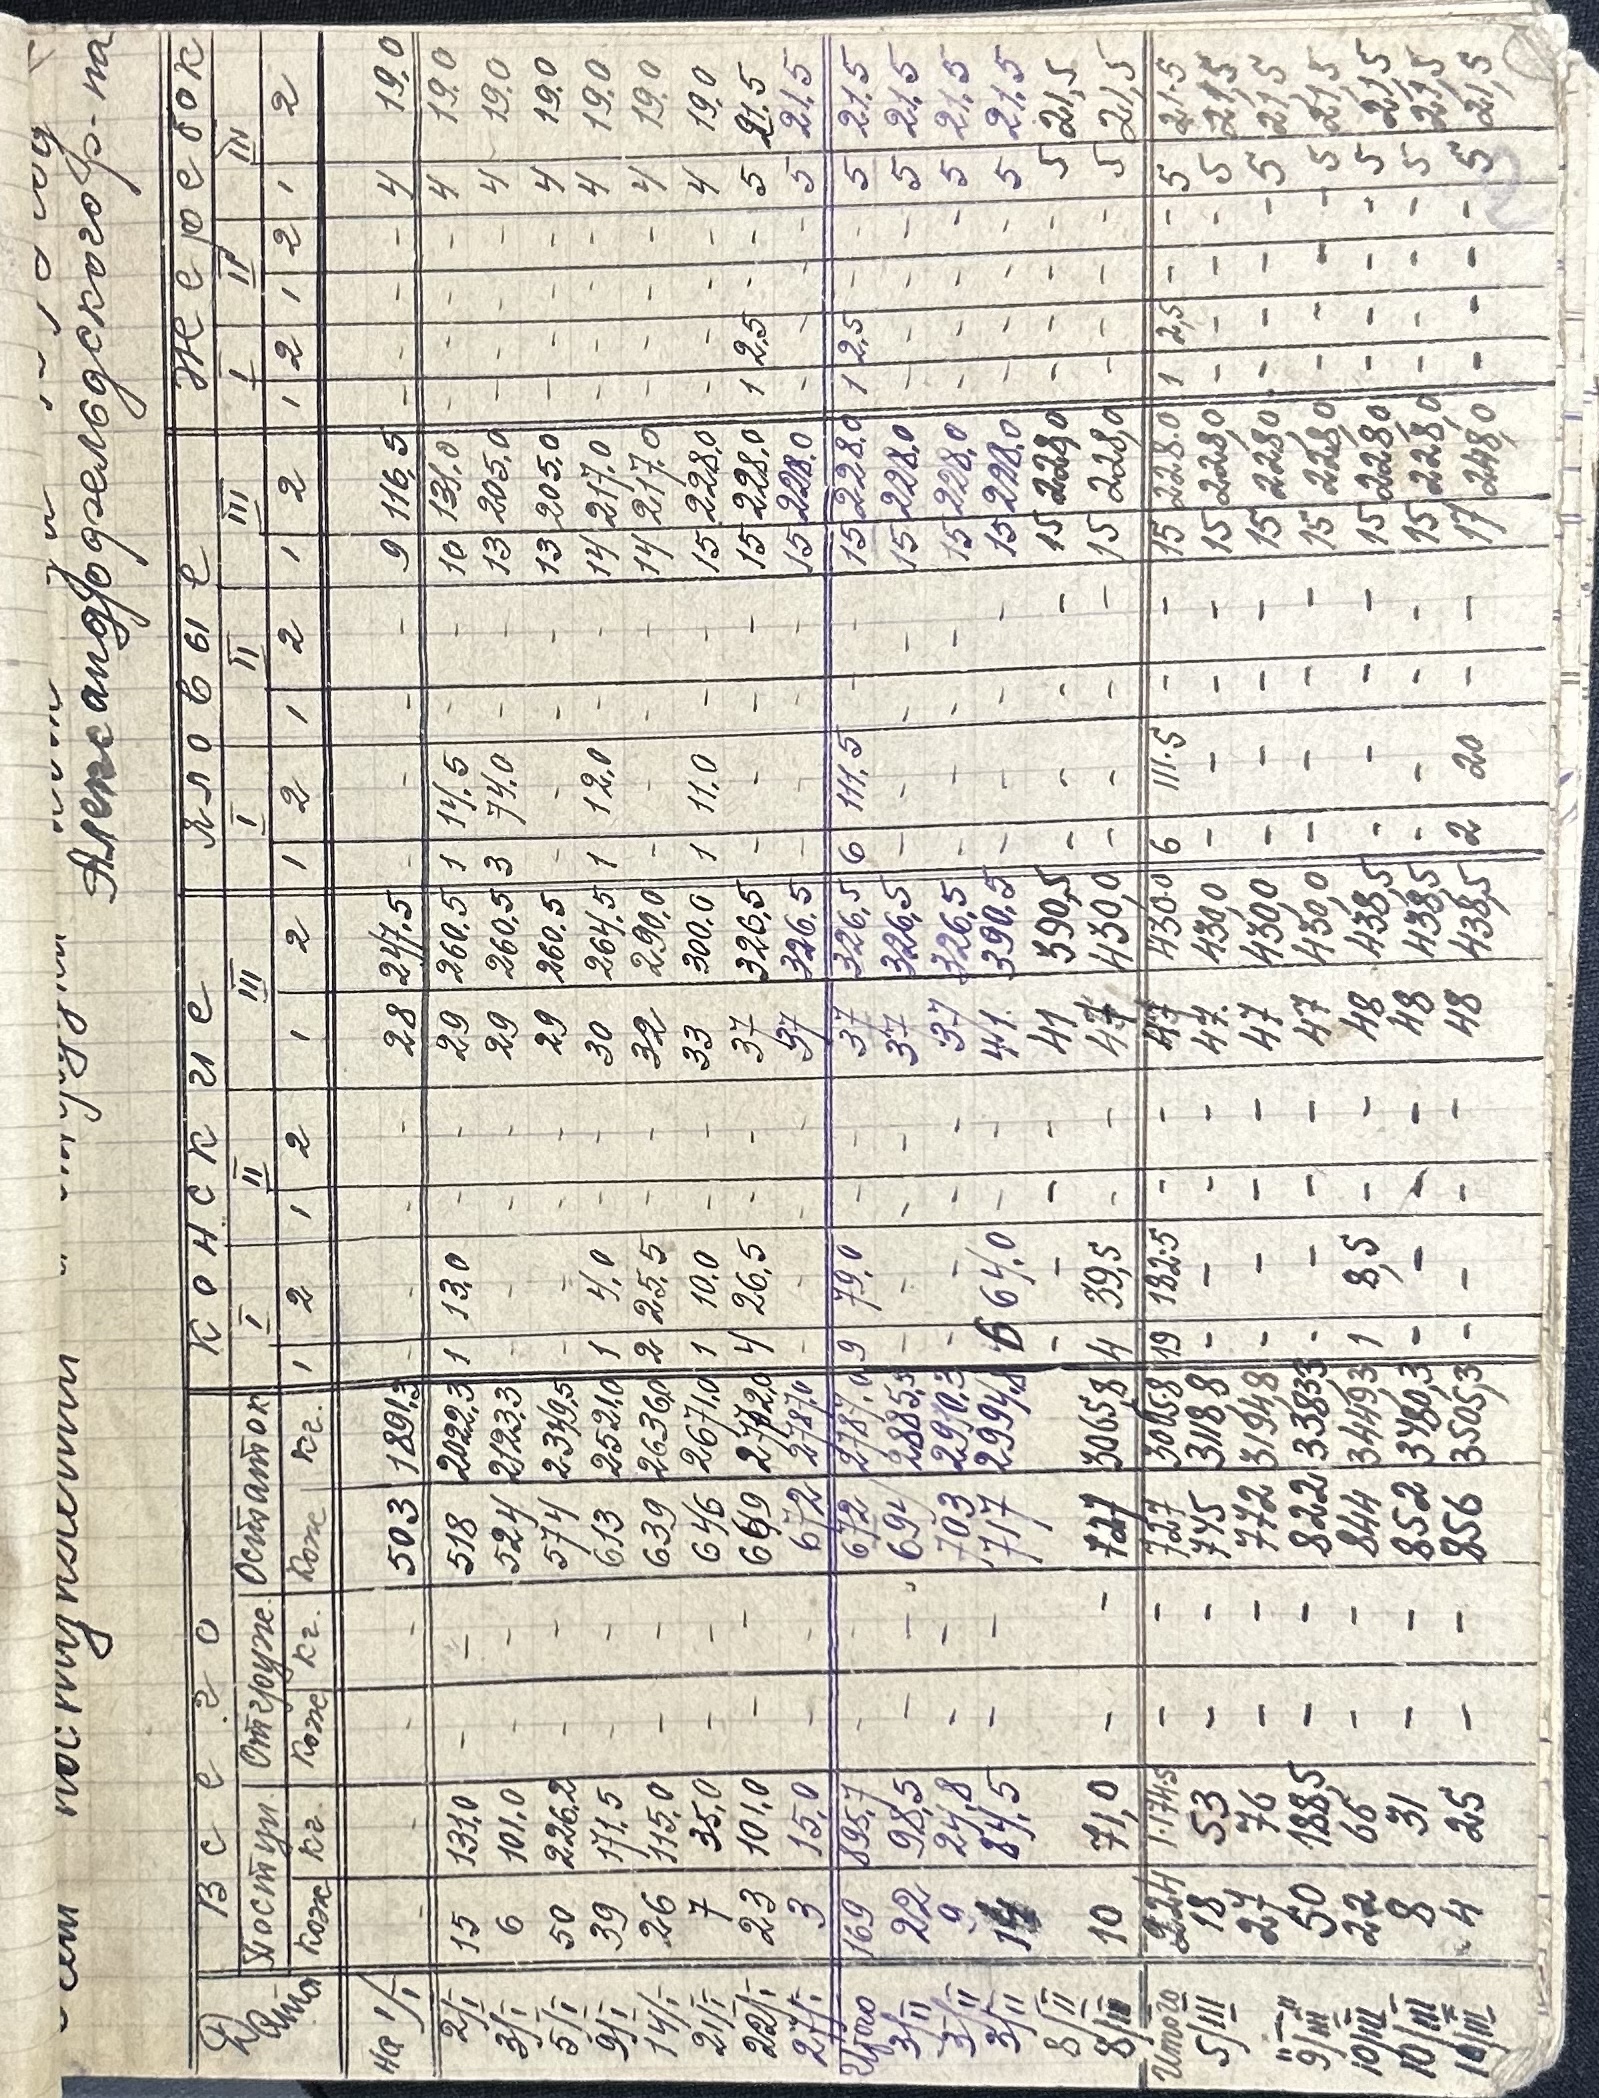 поступлении
Александродзельдского р-на
Дата Всего Конские Яловые Жеребок
Поступ. Отгруж. Остаток I II III I II III I II III
Кож Кг. Кож Кг. Кож Кг. 1 2 1 2 1 2 1 2 1 2 1 2 1 2 1 2 1 2
На 1/I - - - - 503 1891,3 - - - - 28 247.5 - - - - 9 116,5 - - - - 4 19,0
2/I 15 131,0 - - 518 2022,3 1 13,0 - - 29 260.5 1 14,5 - - 10 131,0 - - - - 4 19,0
3/I 6 101,0 - - 524 2123,3 - - - - 29 260,5 3 74,0 - - 13 205,0 - - - - 4 19,0
5/I 50 226,2 - - 574 2349,5 - - - - 29 260.5 - - - - 13 205,0 - - - - 4 19,0
9/I 39 171,5 - - 613 2521,0 1 4,0 - - 30 264,5 1 12,0 - - 14 217,0 - - - - 4 19,0
14/I 26 115,0 - - 639 2636,0 2 25,5 - - 32 290,0 - - - - 14 217,0 - - - - 4 19,0
21/I 7 35,0 - - 646 2671,0 1 10.0 - - 33 300,0 1 11,0 - - 15 228,0 - - - - 4 19,0
22/I 23 101,0 - - 669 2772,0 4 26,5 - - 37 326,5 - - - - 15 228,0 1 2,5 - - 5 21.5
27/I 3 15,0 - - 672 2787,0 - - - - 37 326,5 - - - - 15 228,0 - - - - 5 21,5
Итого 169 895,7 - - 672 2787,0 9 79,0 - - 37 326,5 6 111,5 - - 15 228,0 1 2,5 - - 5 21,5
3/II 22 98,5 - - 694 2885,5 - - - - 37 326,5 - - - - 15 228,0 - - - - 5 21,5
3/II 9 24,8 - - 703 2910,3 - - - - 37 326,5 - - - - 15 228,0 - - - - 5 21,5
3/II 14 84,5 - - 717 2994,8 6 64,0 - - 41 390,5 - - - - 15 228,0 - - - - 5 21,5
8/II - - - - 41 390,5 - - - - 15 228,0 - - - - 5 21,5
8/III 10 71,0 - - 727 3065,8 4 39,5 - - 47 430,0 - - - - 15 228,0 - - - - 5 21,5
Итого 224 1.174.5 - - 727 3065.8 19 182.5 - - 47 430.0 6 111.5 - - 15 228.0 1 2,5 - - 5 21.5
5/III 18 53 - - 745 3118,8 - - - - 47 430,0 - - - - 15 228,0 - - - - 5 21,5
-"- 27 76 - - 772 3194,8 - - - - 47 430,0 - - - - 15 228,0 - - - - 5 21,5
9/III 50 188,5 - - 822 3383,3 - - - - 47 430,0 - - - - 15 228,0 - - - - 5 21,5
10/III 22 66 - - 844 3449,3 1 8,5 - - 48 438,5 - - - - 15 228,0 - - - - 5 21,5
10/III 8 31 - - 852 3480,3 - - - - 48 438,5 - - - - 15 228,0 - - - - 5 21,5
10/III 4 25 - - 856 3505,3 - - - - 48 438,5 2 20 - - 17 248,0 - - - - 5 21,5